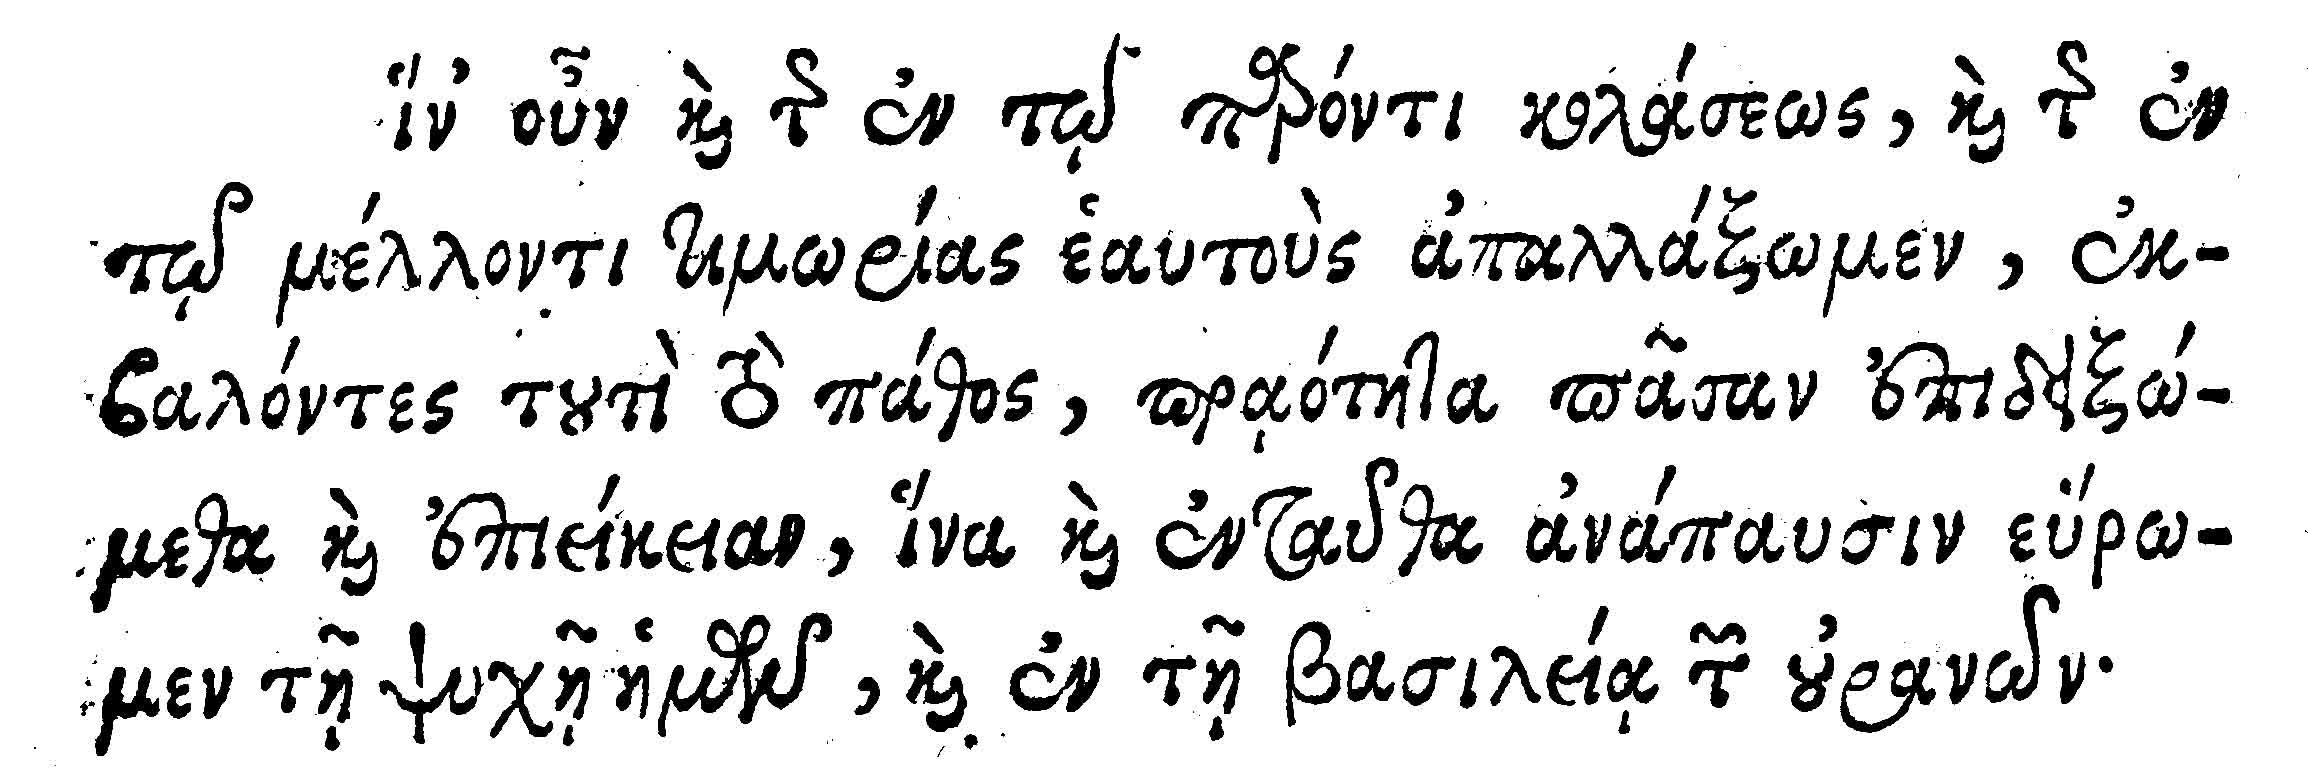 ἵν' οὖν καὶ τῆς ἐν τῷ παρόντι κολάσεως, καὶ τῆς ἐν
τῷ μέλλοντι τιμωρίας ἑαυτοὺς ἀπαλλάξωμεν, ἐκ-
βαλόντες τουτὶ τὸ πάθος, πραότητα πᾶσαν ἐπιδειξώ-
μεθα καὶ ἐπιείκειαν, ἵνα καὶ ἐνταῦθα ἀνάπαυσιν εὕρω-
μεν τῇ ψυχῇ ἡμῶν, καὶ ἐν τῇ βασιλείᾳ τῶν οὐρανῶν.